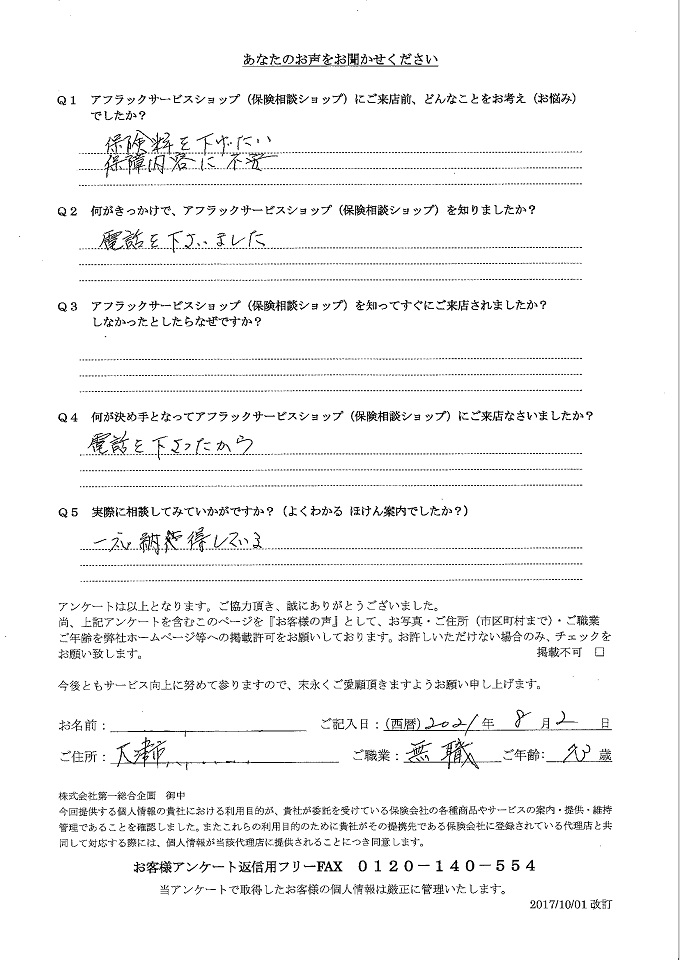 あなたのお声をお聞かせください
Q1 アフラックサービスショップ（保険相談ショップ）にご来店前、どんなことをお考え（お悩み）
でしたか？
保険料を下げたい
保障内容に不安
Q2 何がきっかけで、アフラックサービスショップ（保険相談ショップ）を知りましたか？
電話を下さいました
Q3 アフラックサービスショップ（保険相談ショップ）を知ってすぐにご来店されましたか？
しなかったとしたらなぜですか？
Q4 何が決め手となってアフラックサービスショップ（保険相談ショップ）にご来店なさいましたか？
電話を下さったから
Q5 実際に相談してみていかがですか？（よくわかる ほけん案内でしたか？）
一応納得している
アンケートは以上となります。ご協力頂き、誠にありがとうございました。
尚、上記アンケートを含むこのページを『お客様の声』として、お写真・ご住所（市区町村まで）・ご職業
ご年齢を弊社ホームページ等への掲載許可をお願いしております。お許しいただけない場合のみ、チェックを
お願い致します。 掲載不可 □
今後ともサービス向上に努めて参りますので、末永くご愛顧頂きますようお願い申し上げます。
お名前： ご記入日：（西暦）2021年 8月 2日
ご住所： 大津市 ご職業：無職 ご年齢： 歳
株式会社第一総合企画 御中
今回提供する個人情報の貴社における利用目的が、貴社が委託を受けている保険会社の各種商品やサービスの案内・提供・維持
管理であることを確認しました。またこれらの利用目的のために貴社がその提携先である保険会社に登録されている代理店と共
同して対応する際には、個人情報が当該代理店に提供されることにつき同意します。
お客様アンケート返信用フリーFAX 0120－140－554
当アンケートで取得したお客様の個人情報は厳正に管理いたします。
2017/10/01 改訂